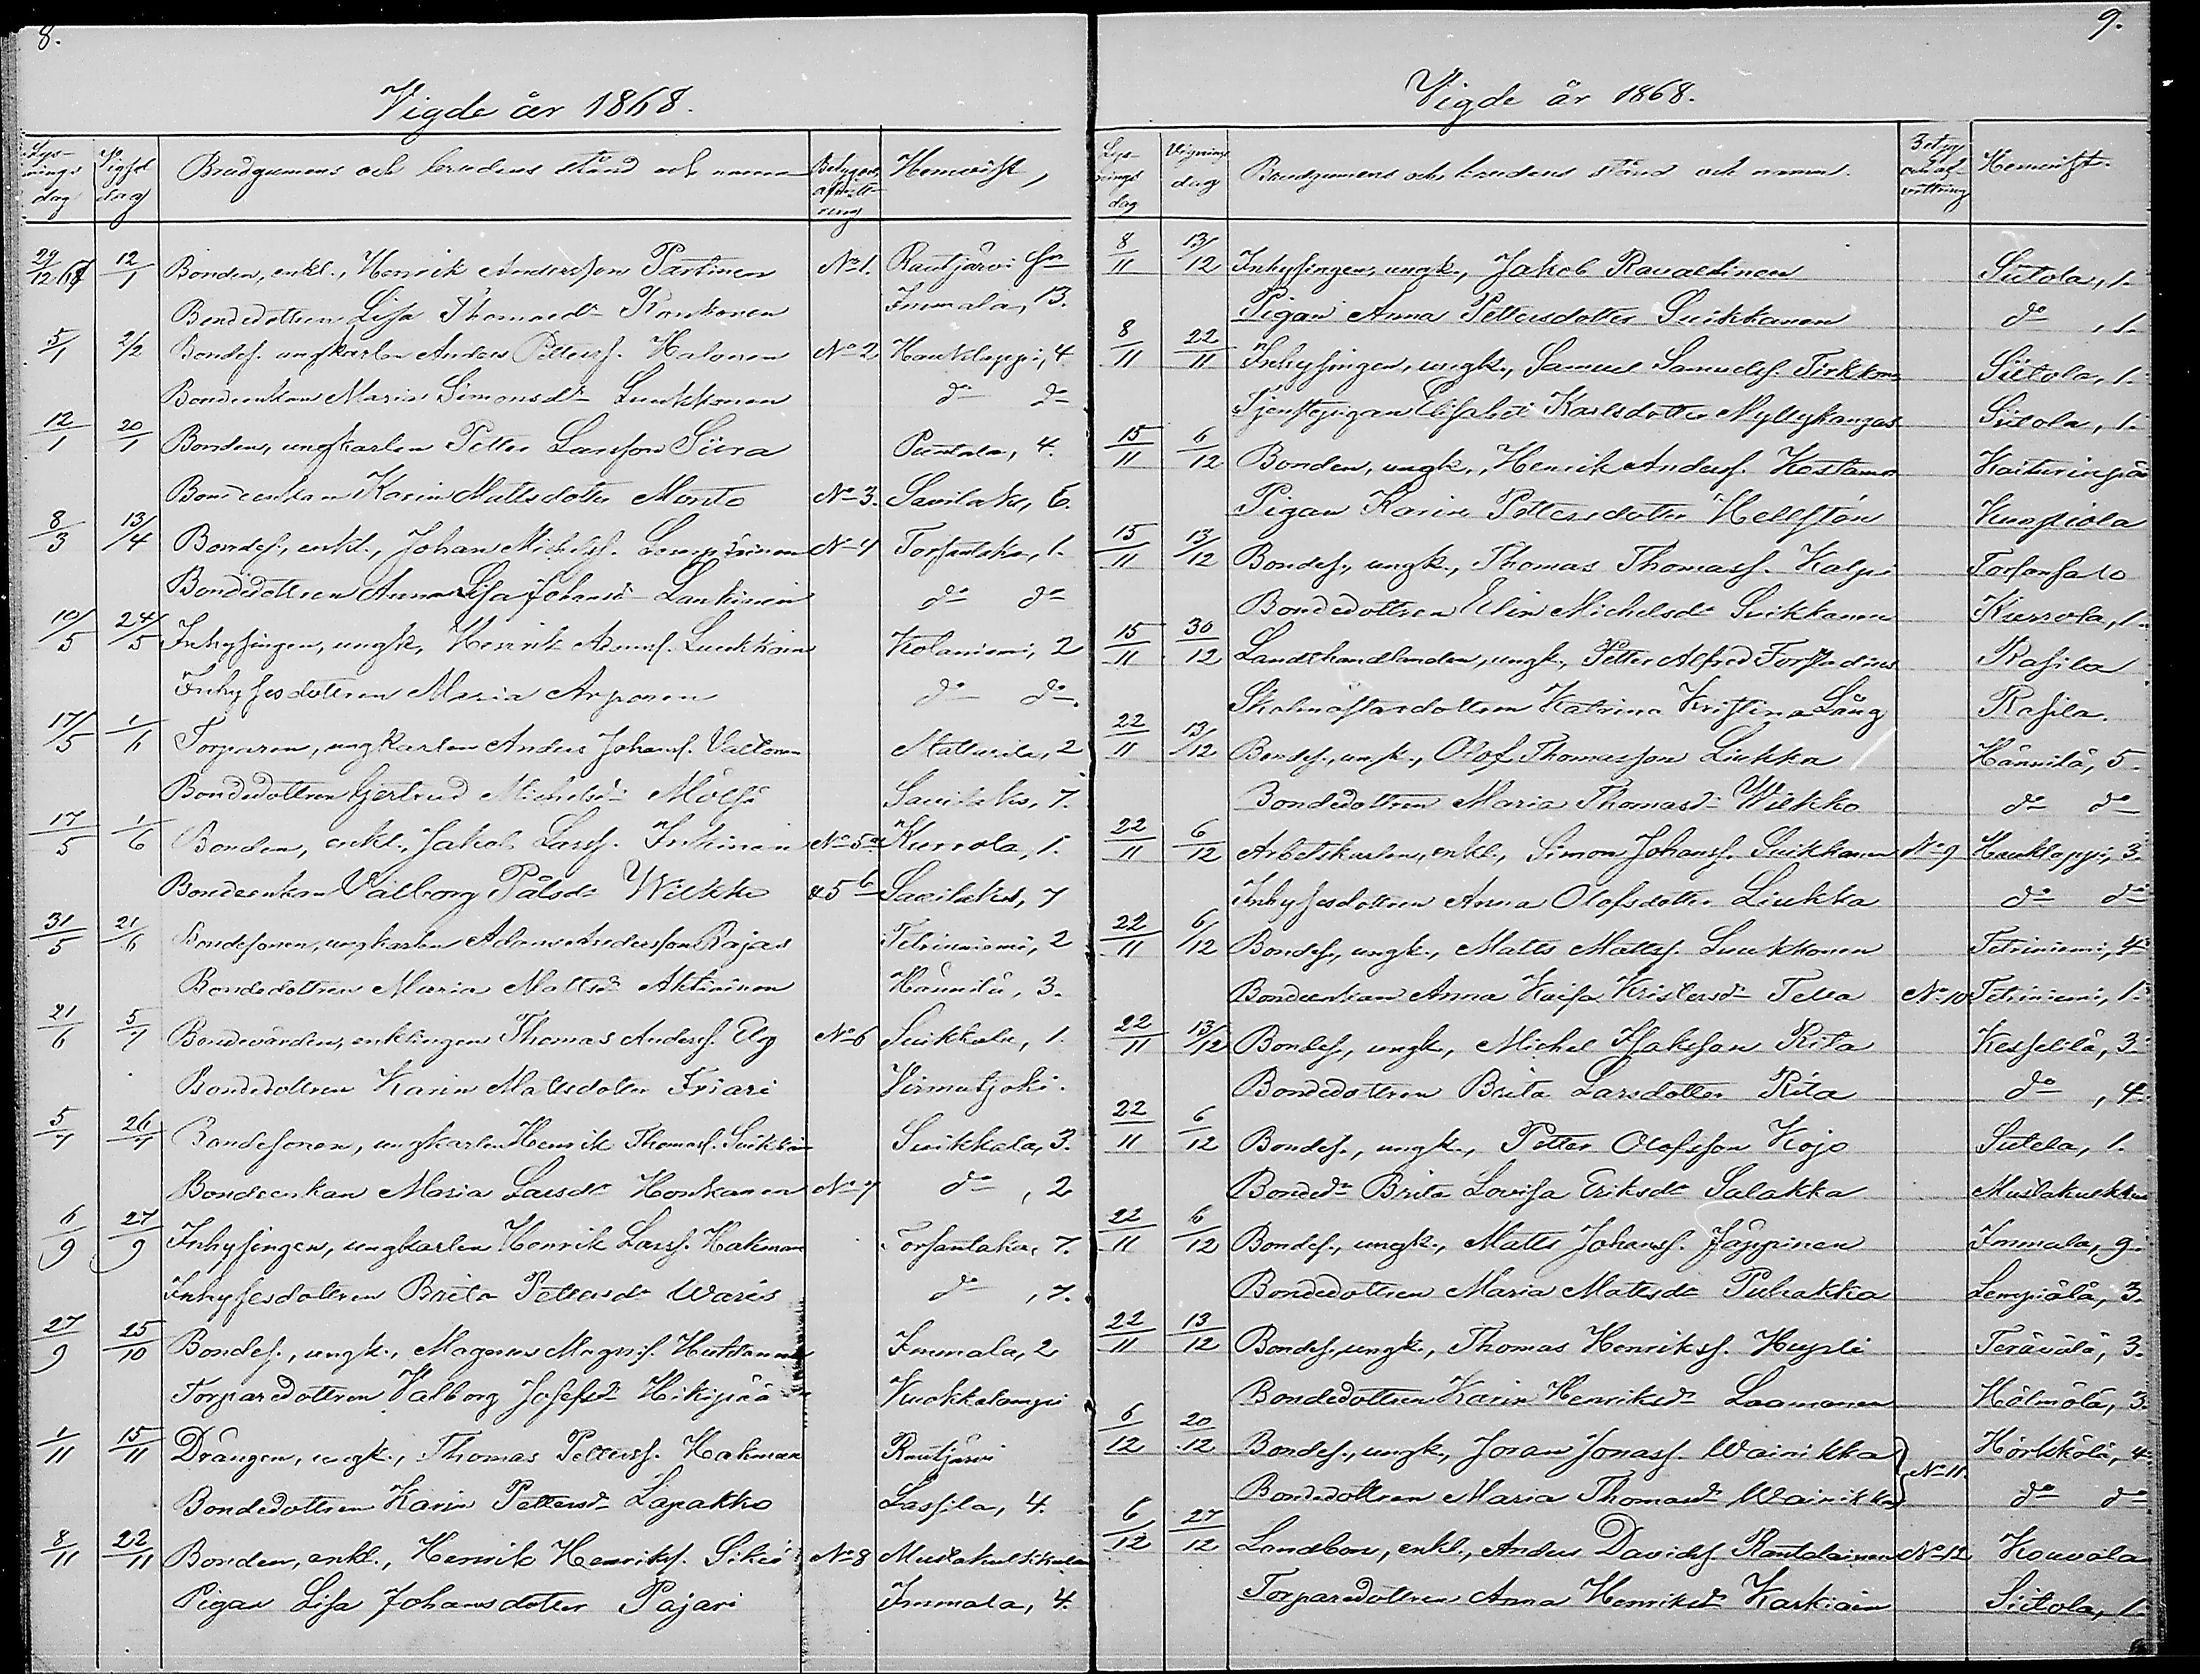 8.
Vigde år 1868.
Lys-
nings
dag
Vigsel
dag
Brudgumens och brudens stånd och namn
Betygens
afskrift-
ning
Hemvist,
29/12 67 12/1 Bonden, enkl., Henrik Andersson Partinen No 1. Rautjärvi Sn
Bondedottren Lisa Thomasdr Konkonen Immala, 13.
5/1 2/2 Bondes. ungkarlen Anders Petterss. Halonen No 2 Hauklappi, 4
Bondeenkan Maria Simonsdr Luukkonen do do
12/1 20/1 Bonden, ungkarlen Petter Larsson Siira Puntala, 4.
Bondeenkan Karin Mattsdotter Monto No 3. Savilaks, 6.
8/3 13/4 Bondes., enkl., Johan Michelss. Lempiäinen No 4 Torsantaka, 1.
Bondedottren Anna Lisa Johansdr Lankinen do do
10/5 24/5 Inhysingen, ungk., Henrik Adamss. Luukkoin Kolaniemi, 2
Inhysesdottren Maria Arponen do do
17/5 1/6 Torparen, ungkarlen Anders Johanss. Valtonen Mattusila, 2
Bondedottren Gertrud Michelsdr Mölsä Savilaks, 7.
17/5 1/6 Bonden, enkl., Jakob Larss. Inkinen No 5a Kurrola, 1.
Bondeenkan Valborg Pålsdr Wilkko & 5b Savilaks, 7
31/5 21/6 Bondesonen, ungkarlen Adam Andersson Rajas Tetriniemi, 2
Bondedottren Maria Mattsdr Ahtiainen Hännilä, 3.
21/6 5/7 Bondevärden, enklingen Thomas Anderss. Elg No 6 Suikkala, 1.
Bondedottren Karin Mattsdotter Friari Virmutjoki.
5/7 26/7 Bondesonen, ungkarlen Henrik Thomass. Suikkan Suikkala, 3.
Bondeenkan Maria Larsdr Honkanen No 7 do, 2
6/9 27/9 Inhysingen, ungkarlen Henrik Larss. Hakman Torsantaka, 7.
Inhysesdottren Brita Pettersdr Waris do, 7.
27/9 25/10 Bondes., ungk., Magnus Magnuss. Huttunen Immala, 2
Torparedottren Valborg Josefsdr Hikipää Kuokkalampi
1/11 15/11 Drängen, ungk., Thomas Petterss. Hakman Rautjärvi
Bondedottren Karin Pettersdr Lapakko Lassila, 4.
8/11 22/11 Bonden, enkl., Henrik Henrikss. Sikiö No 8 Mustakulkkula
Pigan Lisa Johansdotter Pajari Immala, 4.
9.
Vigde år 1868.
Lys-
nings
dag
Vignings
dag
Brudgumens och brudens stånd och namn.
Betyg
om af-
vittring
Hemvist.
8/11 13/12 Inhysingen, ungk., Jakob Ravattinen Siitola, 1.
Pigan Anna Pettersdotter Suikkanen do, 1.
8/11 22/11 Inhysingen, ungk., Samuel Samuelss. Tirkkon Siitola, 1.
Tjenstepigan Elisabet Karlsdotter Myllykangas Siitola, 1.
15/11 6/12 Bonden, ungk., Henrik Anderss. Kostamo Kaituinpä
Pigan Karin Pettersdotter Hellstén Kuopiola
15/11 13/12 Bondes., ungk., Thomas Thomass. Kalpi Torsansalo
Bondedottren Elin Michelsdr Suikkanen Kurrola, 1.
15/11 30/12 Landthandlanden, ungk., Petter Alfred Forstadius Rasila
Skolmästardottren Katrina Kristina Lång Rasila.
22/11 13/12 Bondes., ungk., Olof Thomasson Liukka Hännilä, 5.
Bondedottren Maria Thomasdr Wilkko do do
22/11 6/12 Arbetskarlen, enkl., Simon Johanss. Suikkanen No 9 Hauklappi, 3.
Inhysesdottren Anna Olofsdotter Liukka do do
22/11 6/12 Bondes., ungk., Matts Mattss. Luukkonen Tetriniemi, 4.
Bondeenkan Anna Kaisa Kristersdr Tella No 10 Tetriniemi, 1.
22/11 13/12 Bondes., ungk., Michel Isaksson Rita Kesselilä, 3.
Bondedottren Brita Larsdotter Rita do, 4.
22/11 6/12 Bondes., ungk., Petter Olofsson Kojo Sutela, 1.
Bondedr Brita Lovisa Eriksdr Salakka Mustakulkku
22/11 6/12 Bondes., ungk., Matts Johanss. Jäppinen Immala, 9.
Bondedottren Maria Mattsdr Puhakka Lempiälä, 3.
22/11 13/12 Bondes., ungk., Thomas Henrikss. Hupli Terävälä, 3.
Bondedottren Karin Henriksdr Laamanen Hälmälä, 3.
6/12 20/12 Bondes., ungk., Joran Jonass. Wainikka Hörtskölä, 4.
Bondedottren Maria Thomasdr Wainikka No 11. do do
6/12 27/12 Landbon, enkl., Anders Davidss. Rantalainen No 12 Kouvola
Torparedottren Anna Henriksdr Karkiain Siitola, 1.